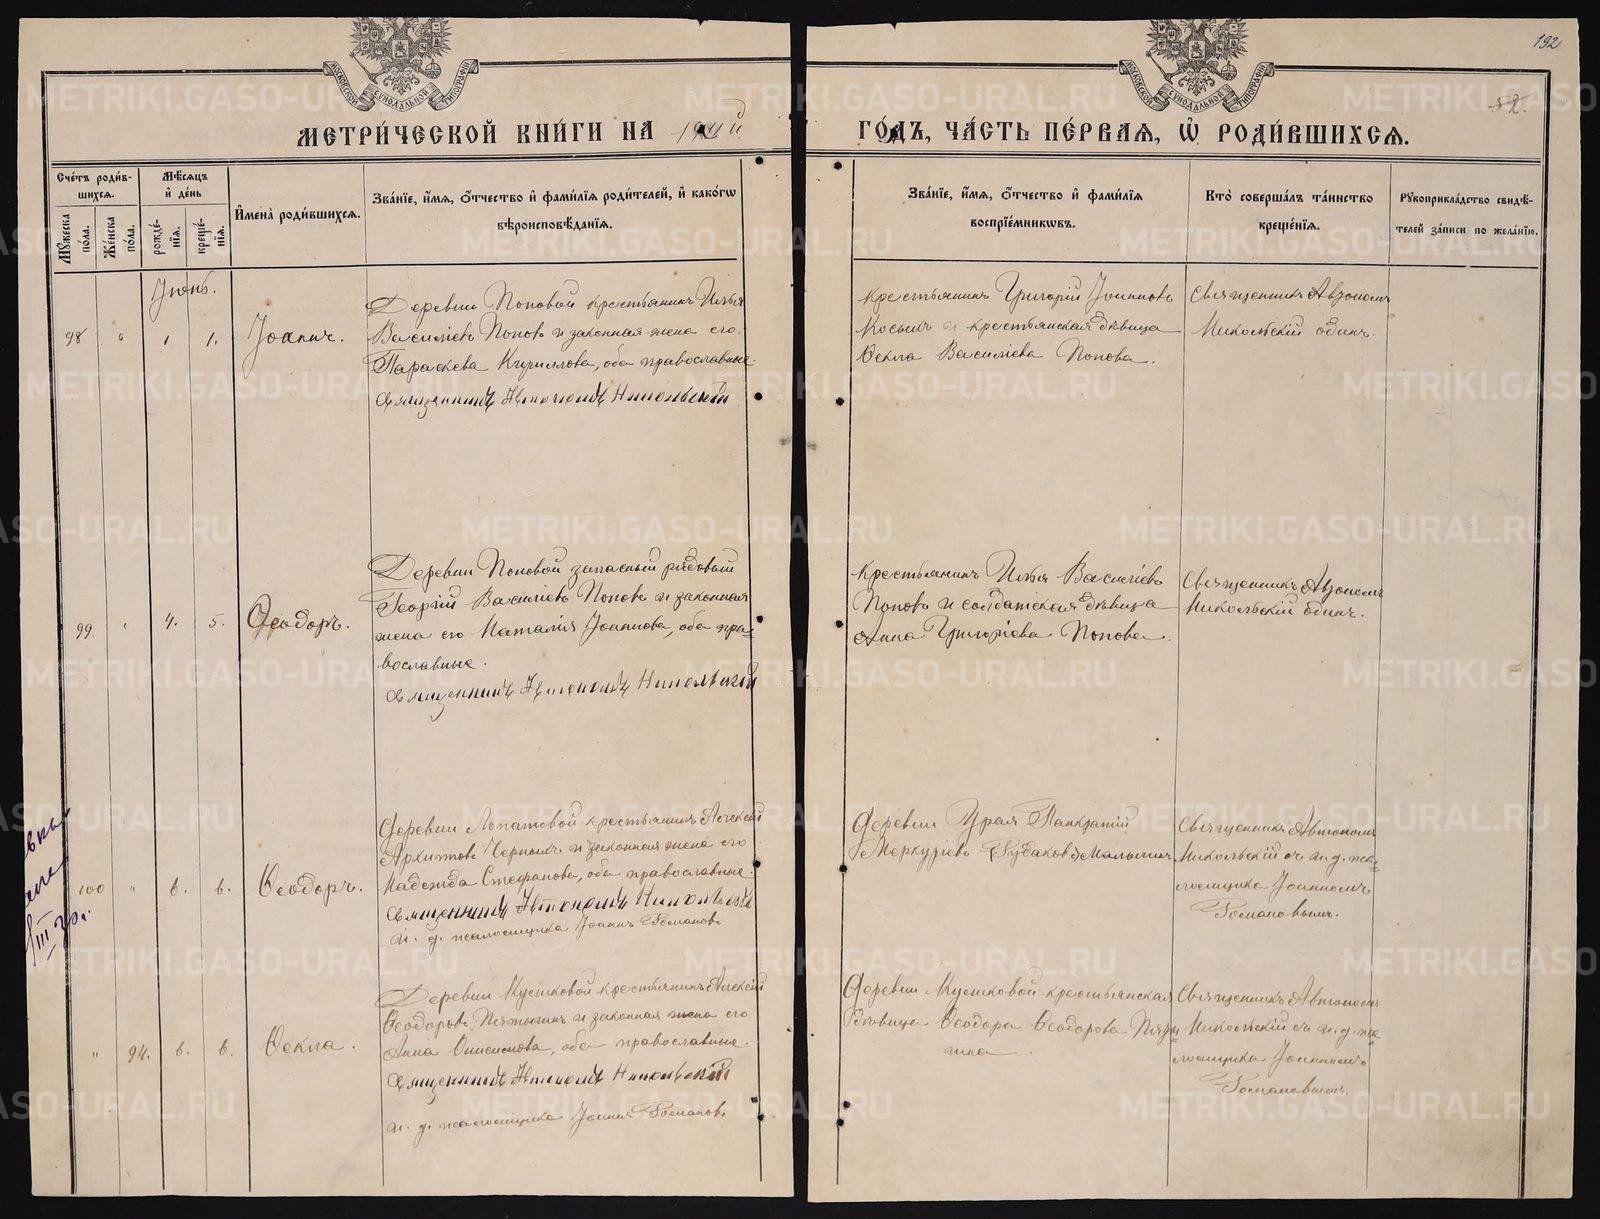 192
52.
МОСКОВСКОЙ СѴНОДАЛЬНОЙ ТИПОГРАФІИ
МОСКОВСКОЙ СѴНОДАЛЬНОЙ ТИПОГРАФІИ
МЕТРИ́ЧЕСКОЙ КНИ́ГИ НА
ГО́ДЪ, ЧА́СТЬ ПЕ́РВАЯ, Ѡ҆ РОДИ́ВШИХСЯ.
Сче́тъ роди́в-
шихся.
Мꙋ́жеска по́ла.
Же́нска по́ла.
Мѣ́сяцъ и҆ де́нь
рожде́-нїя.
креще́-нїя.
И҆мена̀ роди́вшихся.
Зва́нїе, и҆́мя, ѻ҆́тчество и҆ фами́лїя роди́телей, и҆ како́гѡ
вѣроисповѣ́данїя.
Зва́нїе, и҆́мя, ѻ҆́тчество и҆ фами́лїя
воспрїе́мникѡвъ.
Кто̀ соверша́лъ та́инство
креще́нїя.
Рꙋкоприкла́дство свидѣ́-
телей за́писи по жела́нїю.
Іюнь.
98 " 1 1. Іоаннъ.
Деревни Поповой крестьянинъ Илья
Василіевъ Поповъ и законная жена его
Параскева Кириллова, оба православные.
Священникъ Автономъ Никольскій
Крестьянинъ Григорій Іоанновъ
Косыхъ и крестьянская дѣвица
Ѳекла Василіева Попова.
Священникъ Автономъ
Никольскій одинъ.
99. " 4. 5. Ѳеодоръ.
Деревни Поповой запасный рядовый
Георгій Василіевъ Поповъ и законная
жена его Наталія Іоаннова, оба пра-
вославные.
Священникъ Автономъ Никольскій
Крестьянинъ Илья Василіевъ
Поповъ и солдатская дѣвица
Анна Григоріева Попова.
Священникъ Автономъ
Никольскій одинъ.
100 " 6. 6. Ѳеодоръ.
Деревни Лопатовой крестьянинъ Алексій
Архиповъ Черныхъ и законная жена его
Надежда Стефанова, оба православные.
Священникъ Автономъ Никольскій
и. д. псаломщика Іоаннъ Романовъ
Деревни Панкратій
Меркуріевъ Малыгинъ
Священникъ Автономъ
Никольскій съ и. д. пса-
ломщика Іоанномъ
Романовымъ.
III
" 94. 6. 6. Ѳекла.
Деревни Кустковой крестьянинъ Алексій
Ѳеодоровъ Пятыгинъ и законная жена его
Анна Онисимова, оба православные.
Священникъ Автономъ Никольскій
и. д. псаломщика Іоаннъ Романовъ
Деревни Кустковой крестьянская
Ѳеодора Ѳеодорова Пяты-
гина
Священникъ Автономъ
Никольскій съ и. д. пса-
ломщика Іоанномъ
Романовымъ.
METRIKI.GASO-URAL.RU